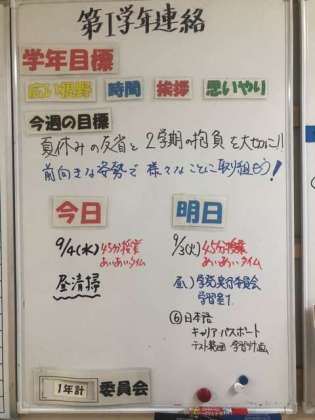 第1学年連絡
学年目標
広い視野 時間 挨拶 思いやり
今週の目標
夏休みの反省と2学期の抱負を大切に!!
前向きな姿勢で様々なことに取り組もう!
今日
9/4(水)45分授業
あいあいタイム
昼清掃
明日
9/3(火)45分授業
あいあいタイム
昼)学発実行委員会
学習室1.
⑥日本語
キャリアパスポート
テスト範囲 学習計画
1年計 委員会